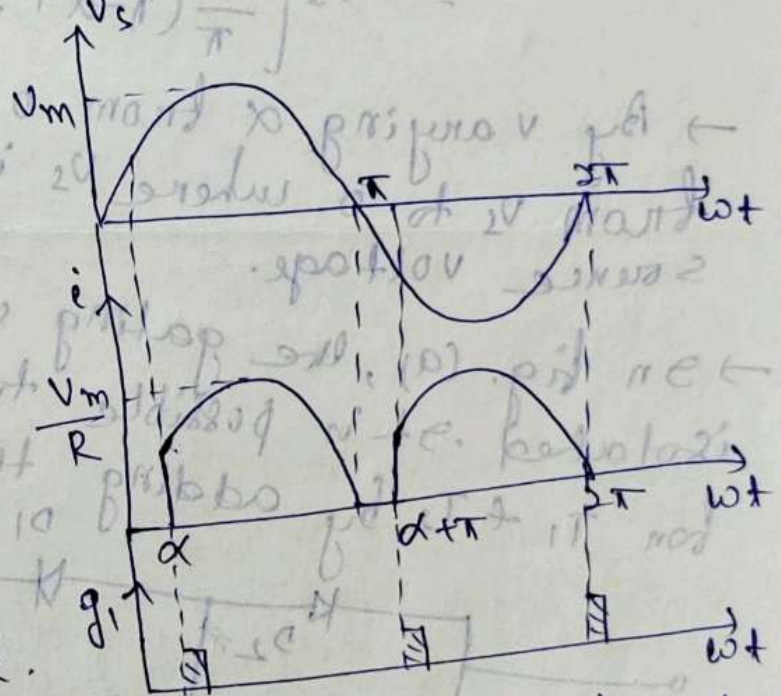 Vs
Vm
π
2π
ωt
i
Vm
R
α
α+π
2π
ωt
g1
ωt